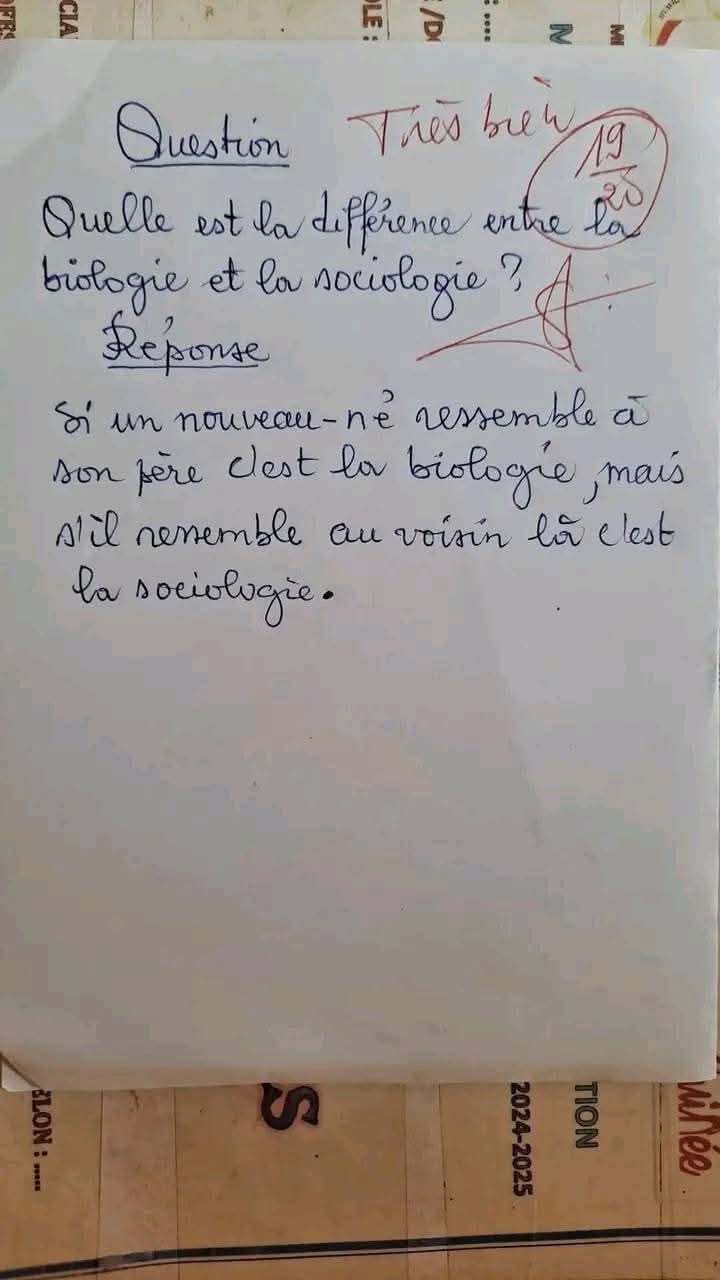 CIA
OLE :
/D
Question
Très bien
19
20
Quelle est la différence entre la
biologie et la sociologie ?
Réponse
Si un nouveau-né ressemble à
son père c'est la biologie, mais
s'il ressemble au voisin là c'est
la sociologie.
ELON : .....
S
2024-2025
TION
uinée